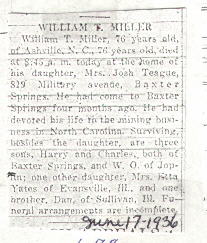 WILLIAM F. MILLER
William T. Miller, 76 years old,
of Ashville, N. C., 76 years old, died
at 8:45 a. m. today at the home of
his daughter, Mrs. Josh Teague,
819 Military avenue, Baxter
Springs. He had come to Baxter
Springs four months ago. He had
devoted his life to the mining busi-
ness in North Carolina. Surviving,
besides the daughter, are three
sons, Harry and Charles, both of
Baxter Springs, and W. O. of Jop-
lin; one other daughter, Mrs. Etta
Yates of Evansville, Ill., and one
brother, Dan, of Sullivan, Ill. Fu-
neral arrangements are incomplete.
June 17, 1936